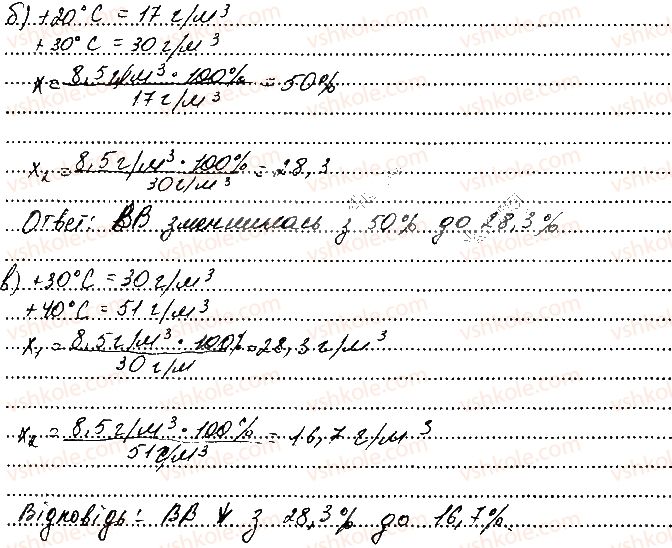 б) +20°C = 17 г/м³
+30°C = 30 г/м³
x = 8,5 г/м³ · 100% / 17 г/м³ = 50%
x₂ = 8,5 г/м³ · 100% / 30 г/м³ = 28,3
Ответ: ВВ зменшилась з 50% до 28,3%
в) +30°C = 30 г/м³
+40°C = 51 г/м³
x₁ = 8,5 г/м³ · 100% / 30 г/м = 28,3 г/м³
x₂ = 8,5 г/м³ · 100% / 51 г/м³ = 16,7 г/м³
Відповідь: ВВ ↓ з 28,3% до 16,7%.